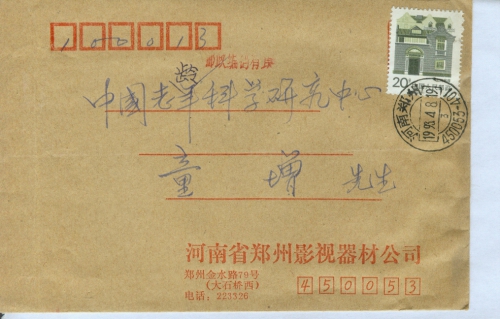 100013
邮政编码有奖
龄
中國老年科学研究中心
童增先生
20
河南郑州
1993.4.8.19
3
450053-104
河南省郑州影视器材公司
郑州金水路79号
(大石桥西)
电话：223326
450053